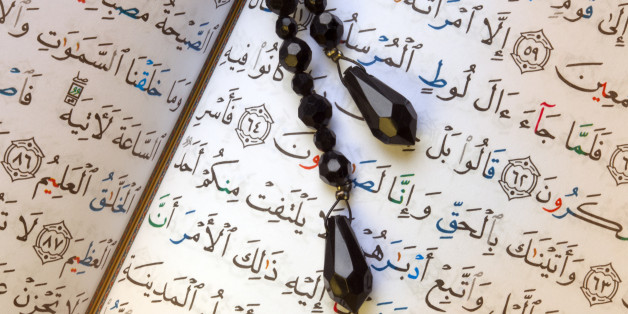 إِلَىٰ قَوْمٍ
مَعِينَ ٥٩ إِلَّا ٱمْرَأَتَهُۥ
فَلَمَّا جَآءَ ءَالَ لُوطٍ ٱلْمُرْسَلُو
كَرُونَ ٦٢ قَالُوا۟ بَلْ كَانُوا۟ فِيهِ
٦٣ وَأَتَيْنَٰكَ بِٱلْحَقِّ وَإِنَّا لَصَ ونَ ٦٤ فَأَسْرِ
ٱلَّيْلِ وَٱتَّبِعْ أَدْبَٰرَهُمْ يَلْتَفِتْ مِنكُمْ أَحَدٌ
إِلَيْهِ ذَٰلِكَ ٱلْأَمْرَ أَنَّ
ٱلْمَدِينَةِ
ٱلصَّيْحَةُ مُصْبِ
وَمَا خَلَقْنَا ٱلسَّمَٰوَٰتِ وَٱلْ
ٱلسَّاعَةَ لَءَاتِيَةٌ فَٱصْ
ٱلْخَلَّٰقُ ٱلْعَلِيمُ ٨٦
ٱلْعَظِيمَ ٨٧ لَا تَ
وَلَا تَحْزَنْ